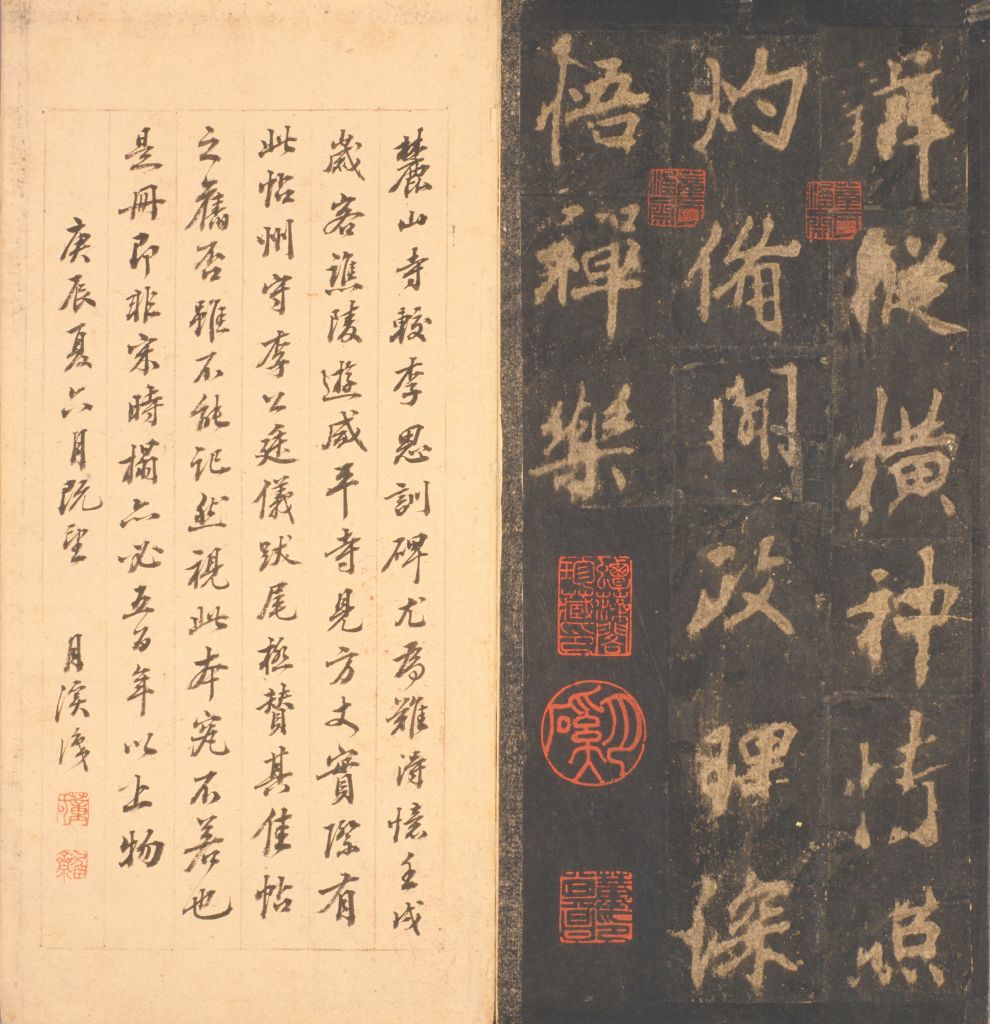 縱橫神情照
灼備聞政理深
悟禪樂
麓山寺較李思訓碑尤為難得憶壬戌
歲客譙陵遊咸平寺見方丈實際有
此帖州守李公廷儀跋尾極贊其佳帖
之舊否雖不能記然視此本宛不若也
是冊即非宋時榻亦必五百年以上物
庚辰夏六月既望 月溪